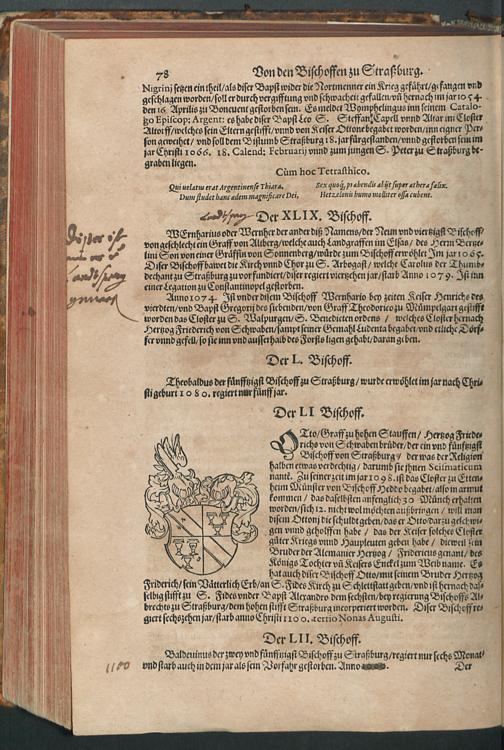 78 Von den Bischoffen zu Straßburg.
Nigrini setzen ein theil/ als diser Bapst wider die Nortmenner ein Krieg geführt/ gefangen vnd
geschlagen worden/ soll er durch vergifftung vnd schwacheit gefallen/ vñ hernach im jar 1054.
den 16 Aprilis zu Boneuent gestorben sein. Es meldet Wymphelingus inn seinem Catalo-
go Episcop: Argent: es habe diser Bapst Leo S. Steffan Capell vnnd Altar im Closter
Altorff/ welches sein Eltern gestifft/ vnnd von Keiser Ottone begabet worden/ inn eigner Per-
son geweihet/ vnd soll dem Bistumb Straßburg 18. jar fürgestanden/ vnnd gestorben sein im
jar Christi 1066. 18. Calend; Februarij vnnd zum jungen S. Peter zu Straßburg be-
graben liegen.
Cùm hoc Tetrasthico.
Qui uelatus erat Argentinense Thiara,
Dum studet hanc ædem magnificare Dei,
Sex quoq; præbendis abijt super æthera fælix.
Hetzelonis humo molliter ossa cubent.
Der XLIX. Bischoff.
WErnharius oder Wernher der ander diß Namens/ der Neun vnd viertzigst Bischoff/
von geschlecht ein Graff von Altberg/ welche auch Landtgraffen im Elsas/ des Herrn Bertze-
lini Son von einer Gräffin von Sonnenberg/ würde zum Bischoff erwöhlet Im jar 1065.
Diser Bischoff bawet die Kirch vnnd Chor zu S. Arbogast/ welche Carolus der Thumb-
dechant zu Straßburg zuvor fundiert/ diser regiert viertzehen jar/ starb Anno 1079. Ist inn
einer Legation zu Constantinopel gestorben.
Anno 1074. Ist vnder disem Bischoff Wernhario bey zeiten Keiser Henrichs des
vierdten/ vnd Bapst Gregorij des siebenden/ von Graff Theodorico zu Mümpelgart gestifft
worden das Closter zu S. Walpurgen/ S. Benedicten ordens / welches Closter hernach
Hertzog Friederich von Schwaben/ sampt seiner Gemahl Ludenta begabet/ vnd etliche Dörf-
fer vnnd gefell/ so sie inn vnd ausserhalb des Forsts ligen gehabt/ daran geben.
Der L. Bischoff.
Theobaldus der fünfftzigst Bischoff zu Straßburg/ wurde erwöhlet im jar nach Chri-
sti geburt 1080. regiert nur fünff jar.
Der LI Bischoff.
OTto/ Graff zu hohen Stauffen/ Hertzog Friede-
richs von Schwaben brüder/ der ein vnd fünfftzigst
Bischoff von Straßburg/ der was der Religion
halben etwas verdechtig/ darumb sie jhnen Scismaticum
nante. Zu seiner zeit im jar 1098. ist das Closter zu Etten-
heim Münster von Bischoff Heddo begabet/ also in armut
kommen / das daselbsten anfenglich 30 Münch erhalten
worden/ sich 12. nicht wol möchten außbringen/ will man
disem Ottoni die schuldt geben/ das er Otto darzu geschwi-
gen vnnd geholffen habe / das der Keiser solches Closter
güter Kriegs vnnd Hauptleuten geben habe / dieweil sein
Bruder der Alemanier Hertzog / Fridericus genant/ des
Königs Tochter vñ Keisers Enckel zum Weib name. Es
hat auch diser Bischoff Otto/ mit seinem Bruder Hertzog
Friderich/ sein Vätterlich Erb/ an S. Fides Kirch zu Schletstatt geben/ vnd ist hernach da-
selbig stifft zu S. Fides vnder Bapst Alexander dem sechsten/ bey regierung Bischoffs Al-
brechts zu Straßburg/ dem hohen stifft Straßburg incorperiert worden. Diser Bischoff re-
giert sechszehen jar/ starb anno Christi 1100. tertio Nonas Augusti.
Der LII. Bischoff.
Baldeuinus der zwey vnd fünfftzigst Bischoff zu Straßburg/ regiert nur sechs Monat/
vnd starb auch in dem jar als sein Vorfahr gestorben. Anno
1100
Der